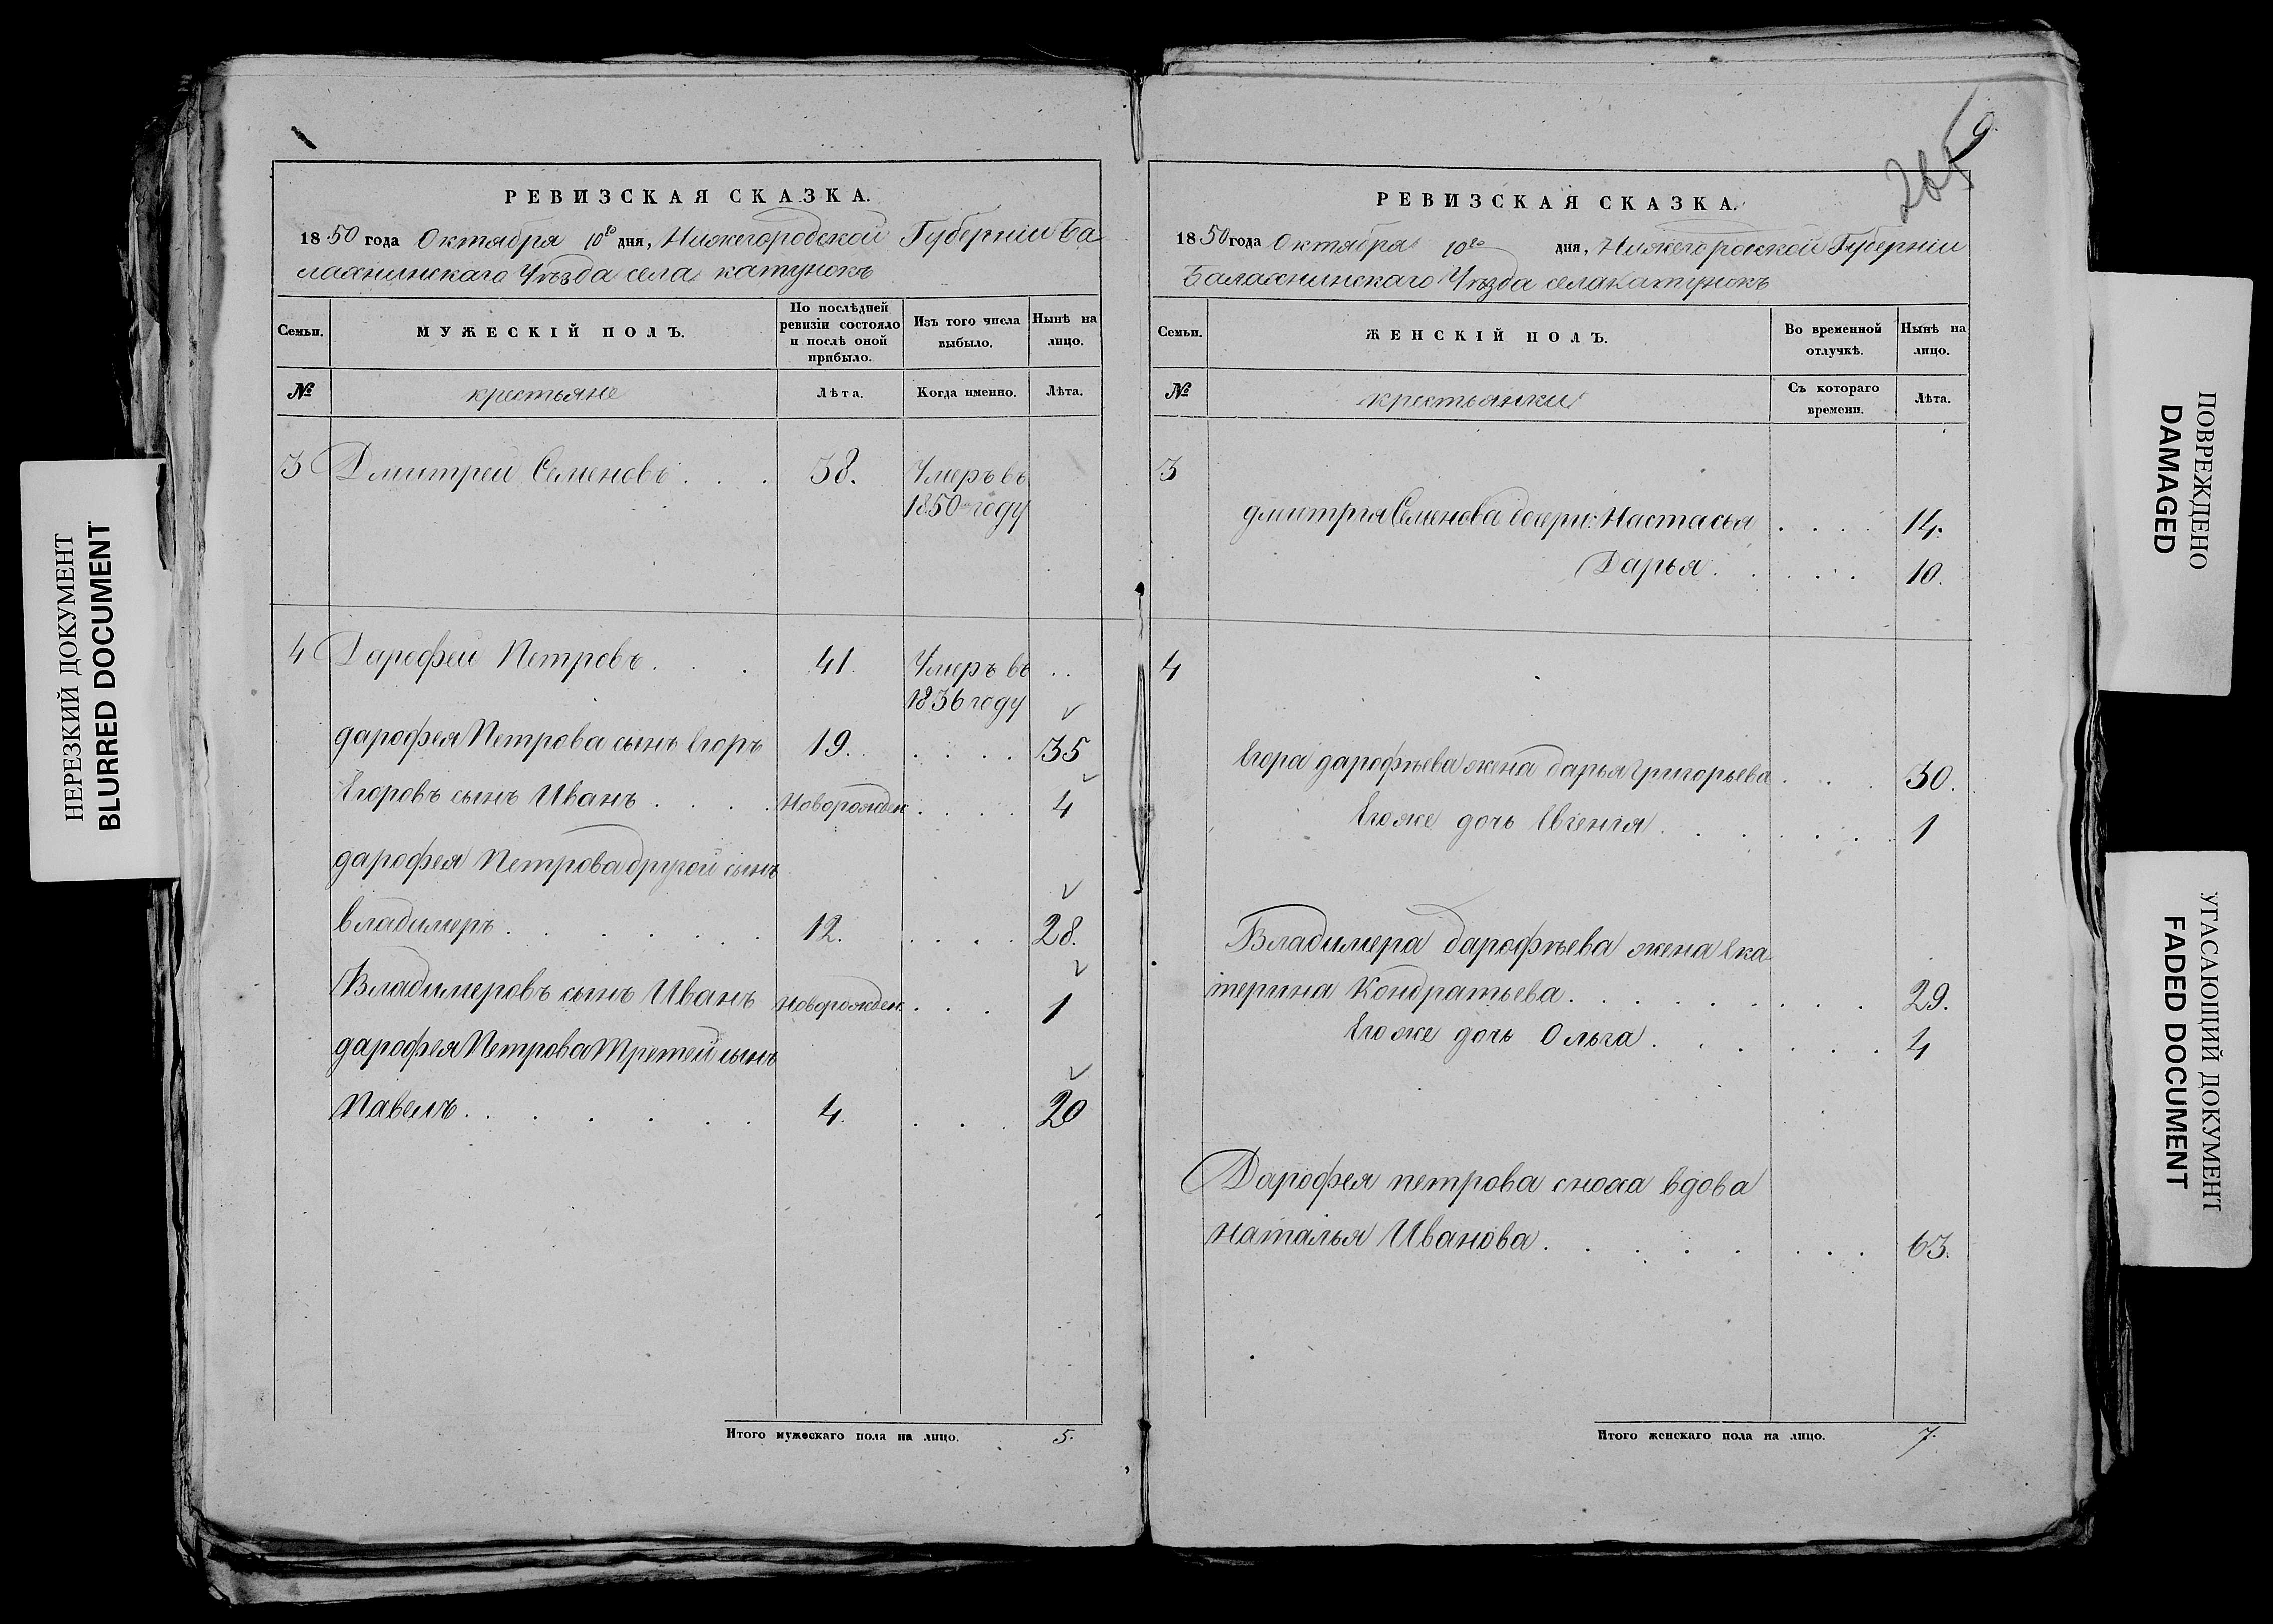 РЕВИЗСКАЯ СКАЗКА.
1850 года Октября 10го дня, Нижегородской Губерніи Ба
лахнинскаго Уѣзда села катунокъ
Семьи. МУЖЕСКІЙ ПОЛЪ. По послѣдней ревизіи состояло и послѣ оной прибыло. Изъ того числа выбыло. Нынѣ на лицо.
№ крестьяне Лѣта. Когда именно. Лѣта.
3 Дмитрей Семеновъ . . . 38. Умеръ въ
1850 году
4 Дарофей Петровъ . . . 41. Умеръ въ . .
1836 году
дарофея Петрова сынъ Егоръ 19. . . . . 35
Егоровъ сынъ Иванъ . . . . Новорожден . . . . 4
дарофея Петрова другой сынъ
владимеръ . . . . . . 12. . . . . 28.
Владимеровъ сынъ Иванъ Новорожден . . . 1
дарофея Петрова Третей сынъ
Павелъ . . . . . . 4. . . . 20
Итого мужескаго пола на лицо. 5.
9.
265
РЕВИЗСКАЯ СКАЗКА.
1850 года Октября 10го дня, Нижегородской Губерніи
Балахнинскаго Уѣзда села катунокъ
Семьи. ЖЕНСКІЙ ПОЛЪ. Во временной отлучкѣ. Нынѣ на лицо.
№ крестьянки Съ котораго времени. Лѣта.
3
дмитрія Семенова дочери: Настасья . . . . 14.
Дарья . . . . . 10.
4
Егора дарофѣева жена дарья григорьева . . . 30.
Егоже дочь Евгенія . . . . . . . 1
Владимера дарофѣева жена Ека
терина Кондратьева . . . . . . . . . 29.
Егоже дочь Ольга . . . . . . 4
Дарофея петрова сноха вдова
наталья Иванова . . . . . . . . 63.
Итого женскаго пола на лицо. 7.
НЕРЕЗКИЙ ДОКУМЕНТ
BLURRED DOCUMENT
ПОВРЕЖДЕНО
DAMAGED
УГАСАЮЩИЙ ДОКУМЕНТ
FADED DOCUMENT